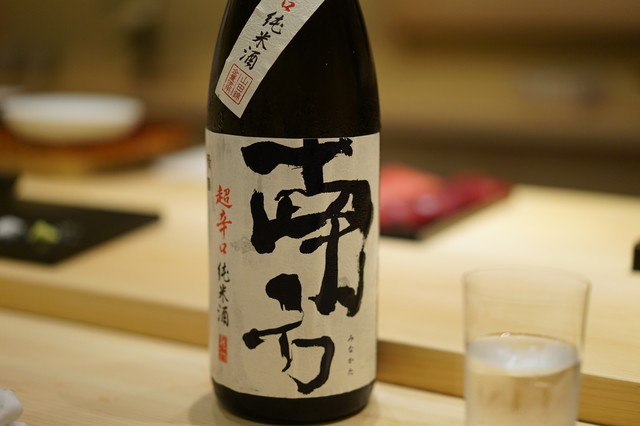 口 純米酒
山田錦
南方
みなかた
超辛口 純米酒